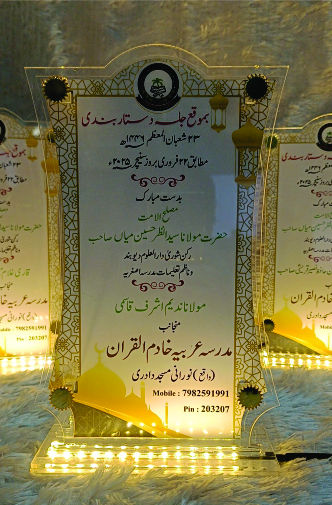 بموقع جلسہ دستار بندی
۲۳ شعبان المعظم ۱۴۴۶ھ
مطابق ۲۲ فروری بروز سنیچر ۲۰۲۵ء
بدست مبارک
مصلح الامت
حضرت مولانا سید انظر حسین میاں صاحب
رکن شوری دارالعلوم دیوبند
و ناظم تعلیمات مدرسہ اصغریہ
مولانا ندیم اشرف قاسمی
منجانب
مدرسہ عربیہ خادم القرآن
(واقع) نورانی مسجد دادری
Mobile : 7982591991
Pin : 203207
دستار بندی
Mobile : 7982591991
Pin : 203207